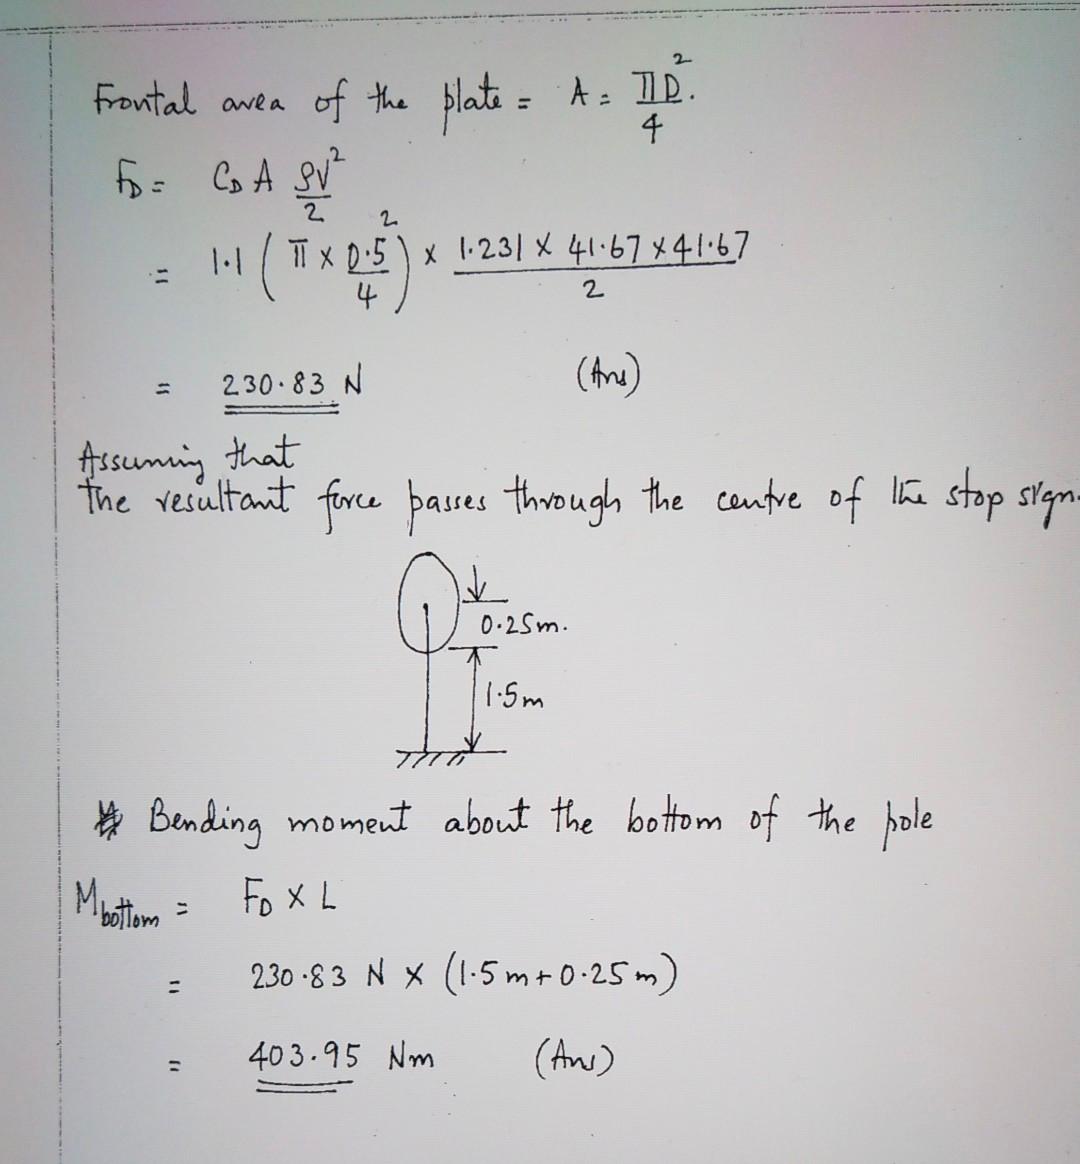 Frontal area of the plate = A = πD²/4.
F_D = C_D A ρV²/2
= 1.1 (π × 0.5²/4) × 1.231 × 41.67 × 41.67/2
= 230.83 N (Ans)
Assuming that
the resultant force passes through the centre of the stop sign.
0.25m.
1.5m
Bending moment about the bottom of the pole
M_bottom = F_D × L
= 230.83 N × (1.5m + 0.25m)
= 403.95 Nm (Ans)